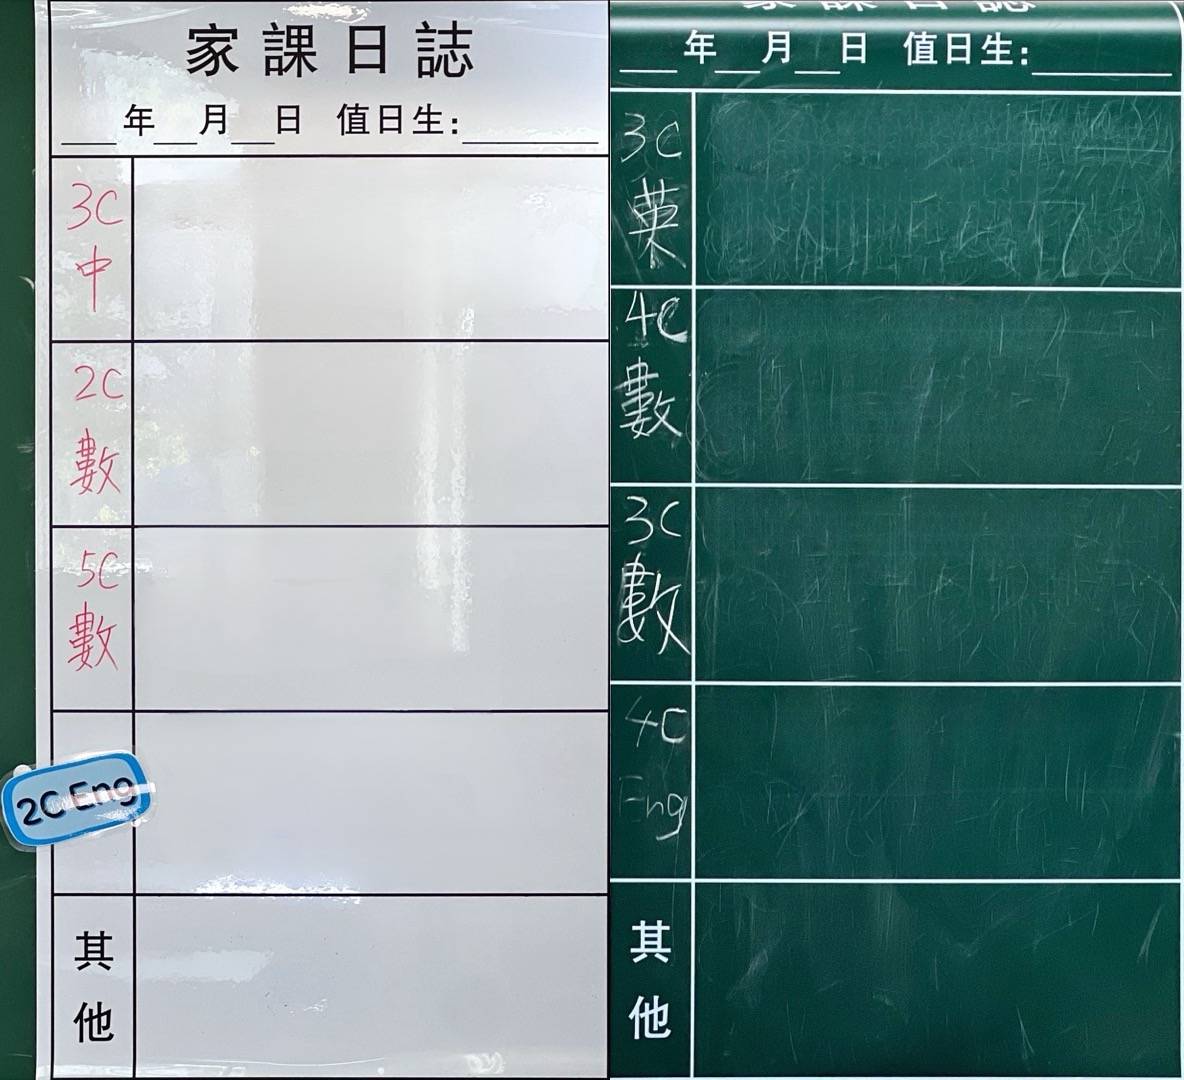 家課日誌
年 月 日 值日生:
3C
中
2C
數
5C
數
2C Eng
其
他
家課日誌
年 月 日 值日生:
3C
4C
數
3C
數
4C
Eng
其
他